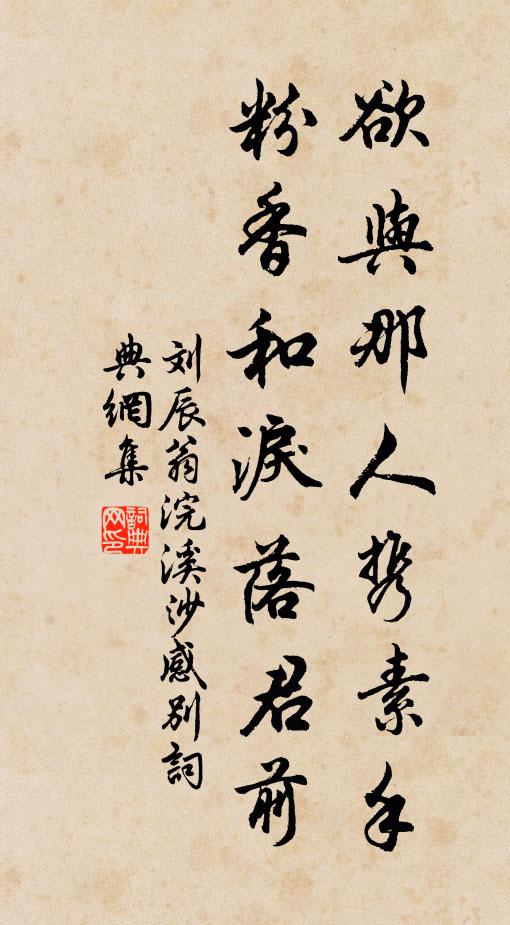 欲與那人携素手
粉香和淚落君前
刘辰翁浣溪沙感别詞
典網集
詞典網印